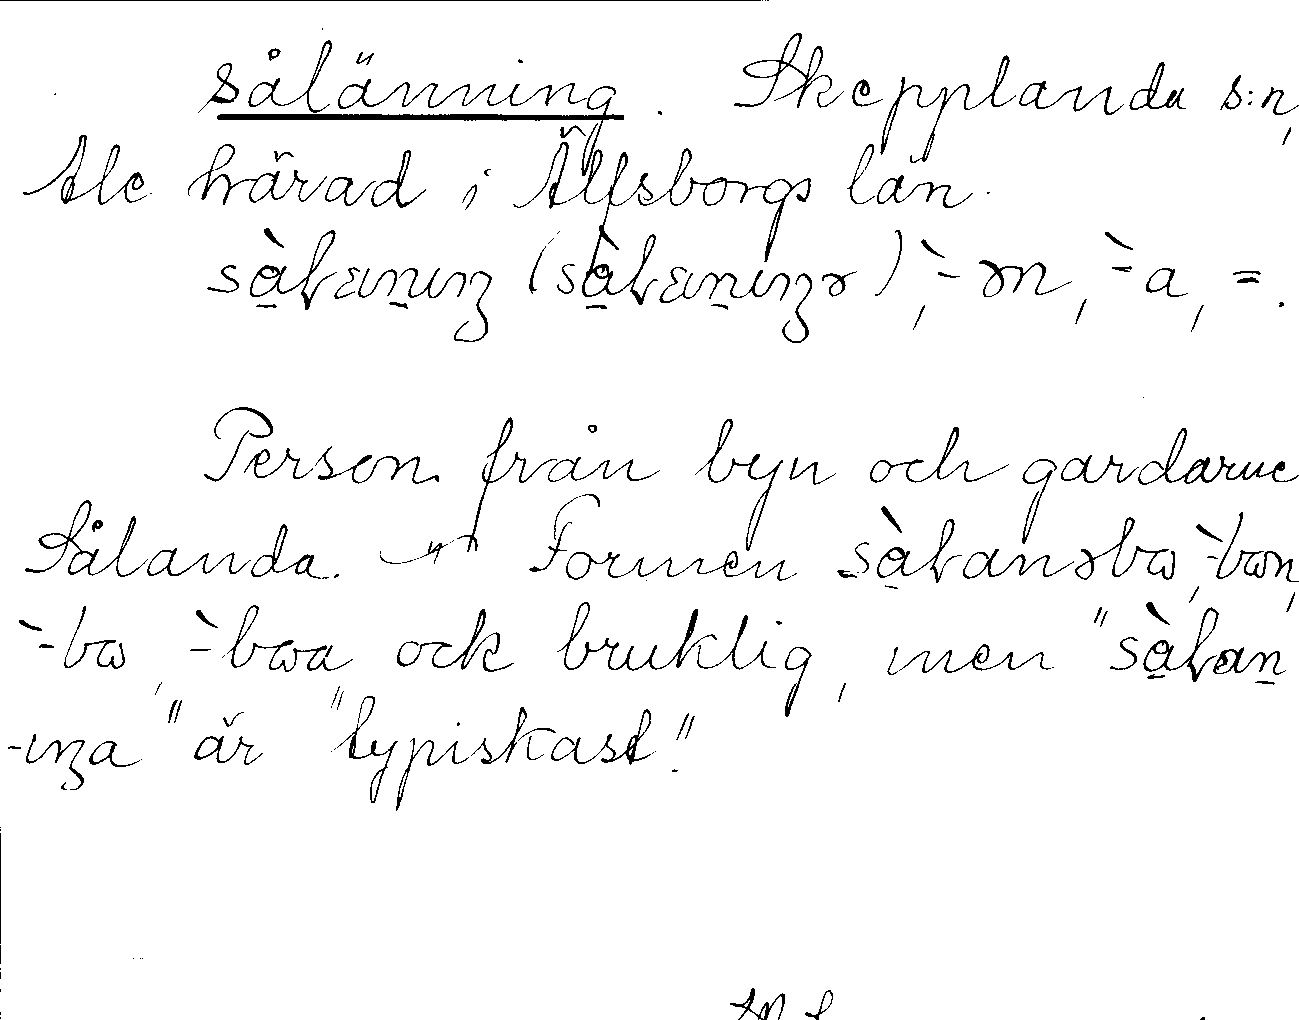 sålänning. Skepplanda s:n,
Ale härad i Älfsborgs län.
sɑ̱̀ɫæṉıŋ (sɑ̱̀ɫæṉıŋər), `-ən, `-a, =.
Person från byn och gardarne
Sålanda. — Formen sɑ̱̀ɫanəbω, `-bωn,
`-bω, `-bωa ock bruklig, men "sɑ̱̀ɫaṉ
-ıŋa" är "typiskast".